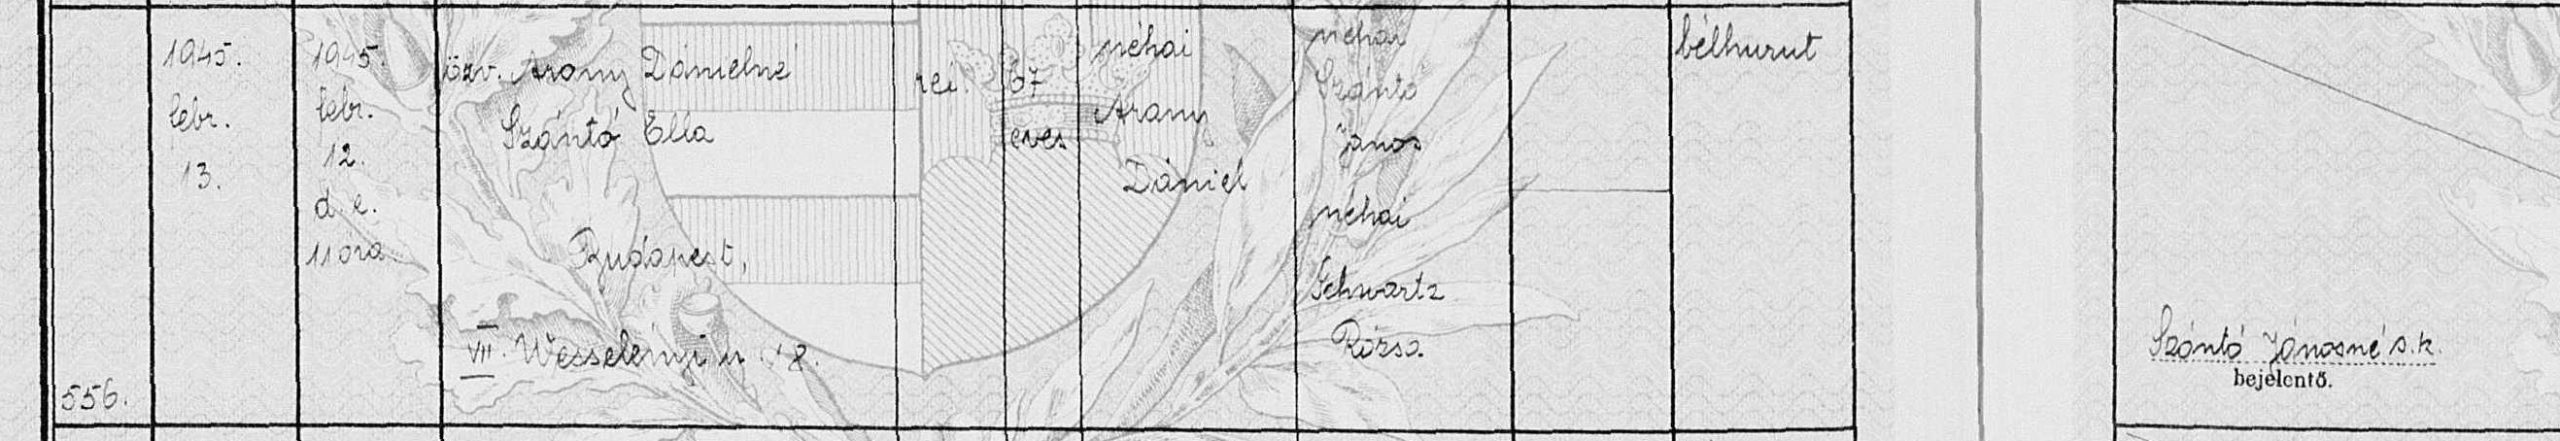 556.
1945.
febr.
13.
1945.
febr.
12.
d. e.
11 óra
özv. Arany Dánielné
Szántó Ella
Budapest,
VII. Wesselényi u 8.
67
éves
néhai
Arany
Dániel
néhai
Szántó
János
néhai
Schwartz
Rózsa
bélhurut
Szántó Jánosné s.k.
bejelentő.